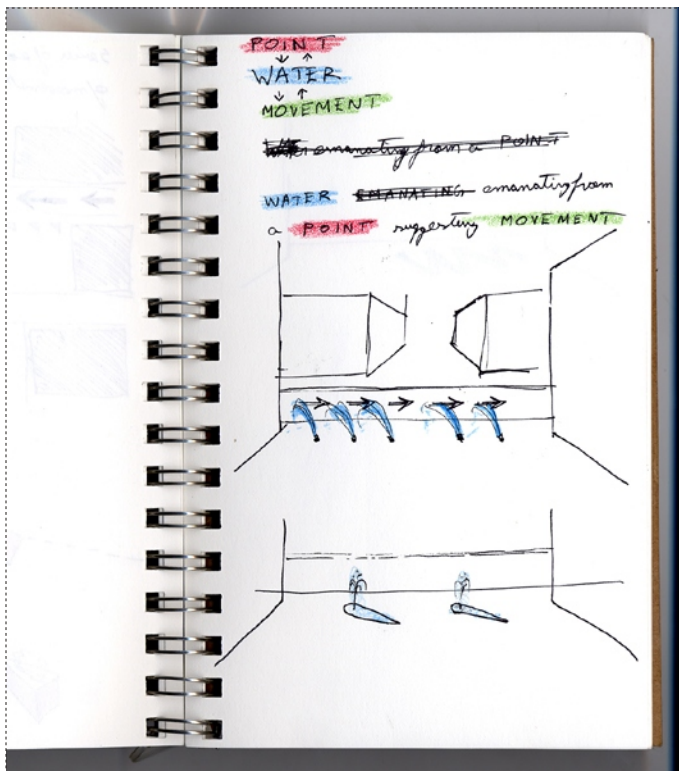 POINT
WATER
MOVEMENT
emanating from a POINT
WATER EMANATING emanating from
a POINT suggesting MOVEMENT